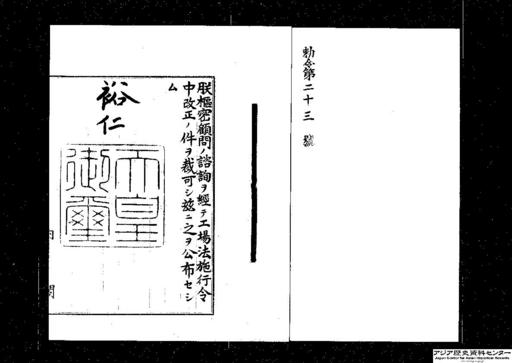 勅令第二十三號
朕樞密顧問ノ諮詢ヲ經テ工場法施行令
中改正ノ件ヲ裁可シ茲ニ之ヲ公布セシ
ム
裕仁
天皇
御璽
内閣
アジア歴史資料センター
Japan Center for Asian Historical Records